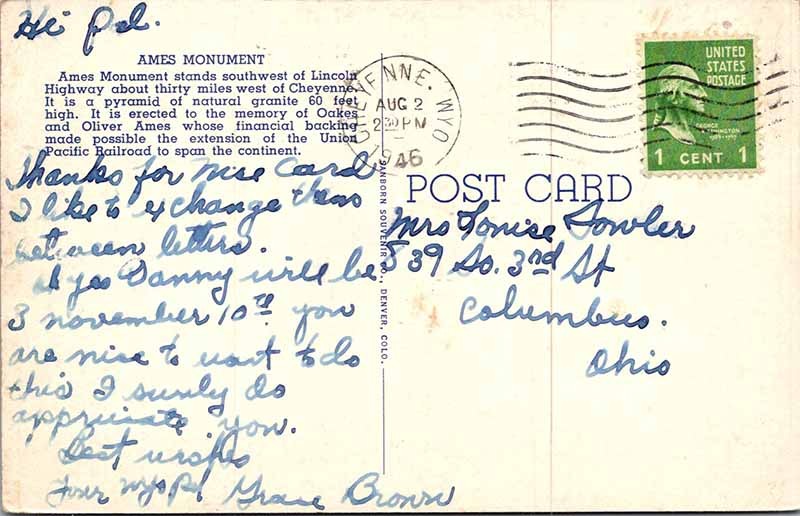 Hi Pal.
AMES MONUMENT
Ames Monument stands southwest of Lincoln
Highway about thirty miles west of Cheyenne.
It is a pyramid of natural granite 60 feet
high. It is erected to the memory of Oakes
and Oliver Ames whose financial backing
made possible the extension of the Union
Pacific Railroad to span the continent.
Thanks for nice Card
I like to exchange them
between letters.
yes Danny will be
3 november 10th. you
are nice to want to do
this I surely do
appriciate you.
Best wishes
Your Wyo Pal Grace Brown
SANBORN SOUVENIR CO., DENVER, COLO.
CHEYENNE, WYO
AUG 2
2 30 PM
1946
UNITED
STATES
POSTAGE
GEORGE
WASHINGTON
1 CENT 1
POST CARD
Mrs Louise Fowler
839 So. 3rd St
Columbus.
Ohio